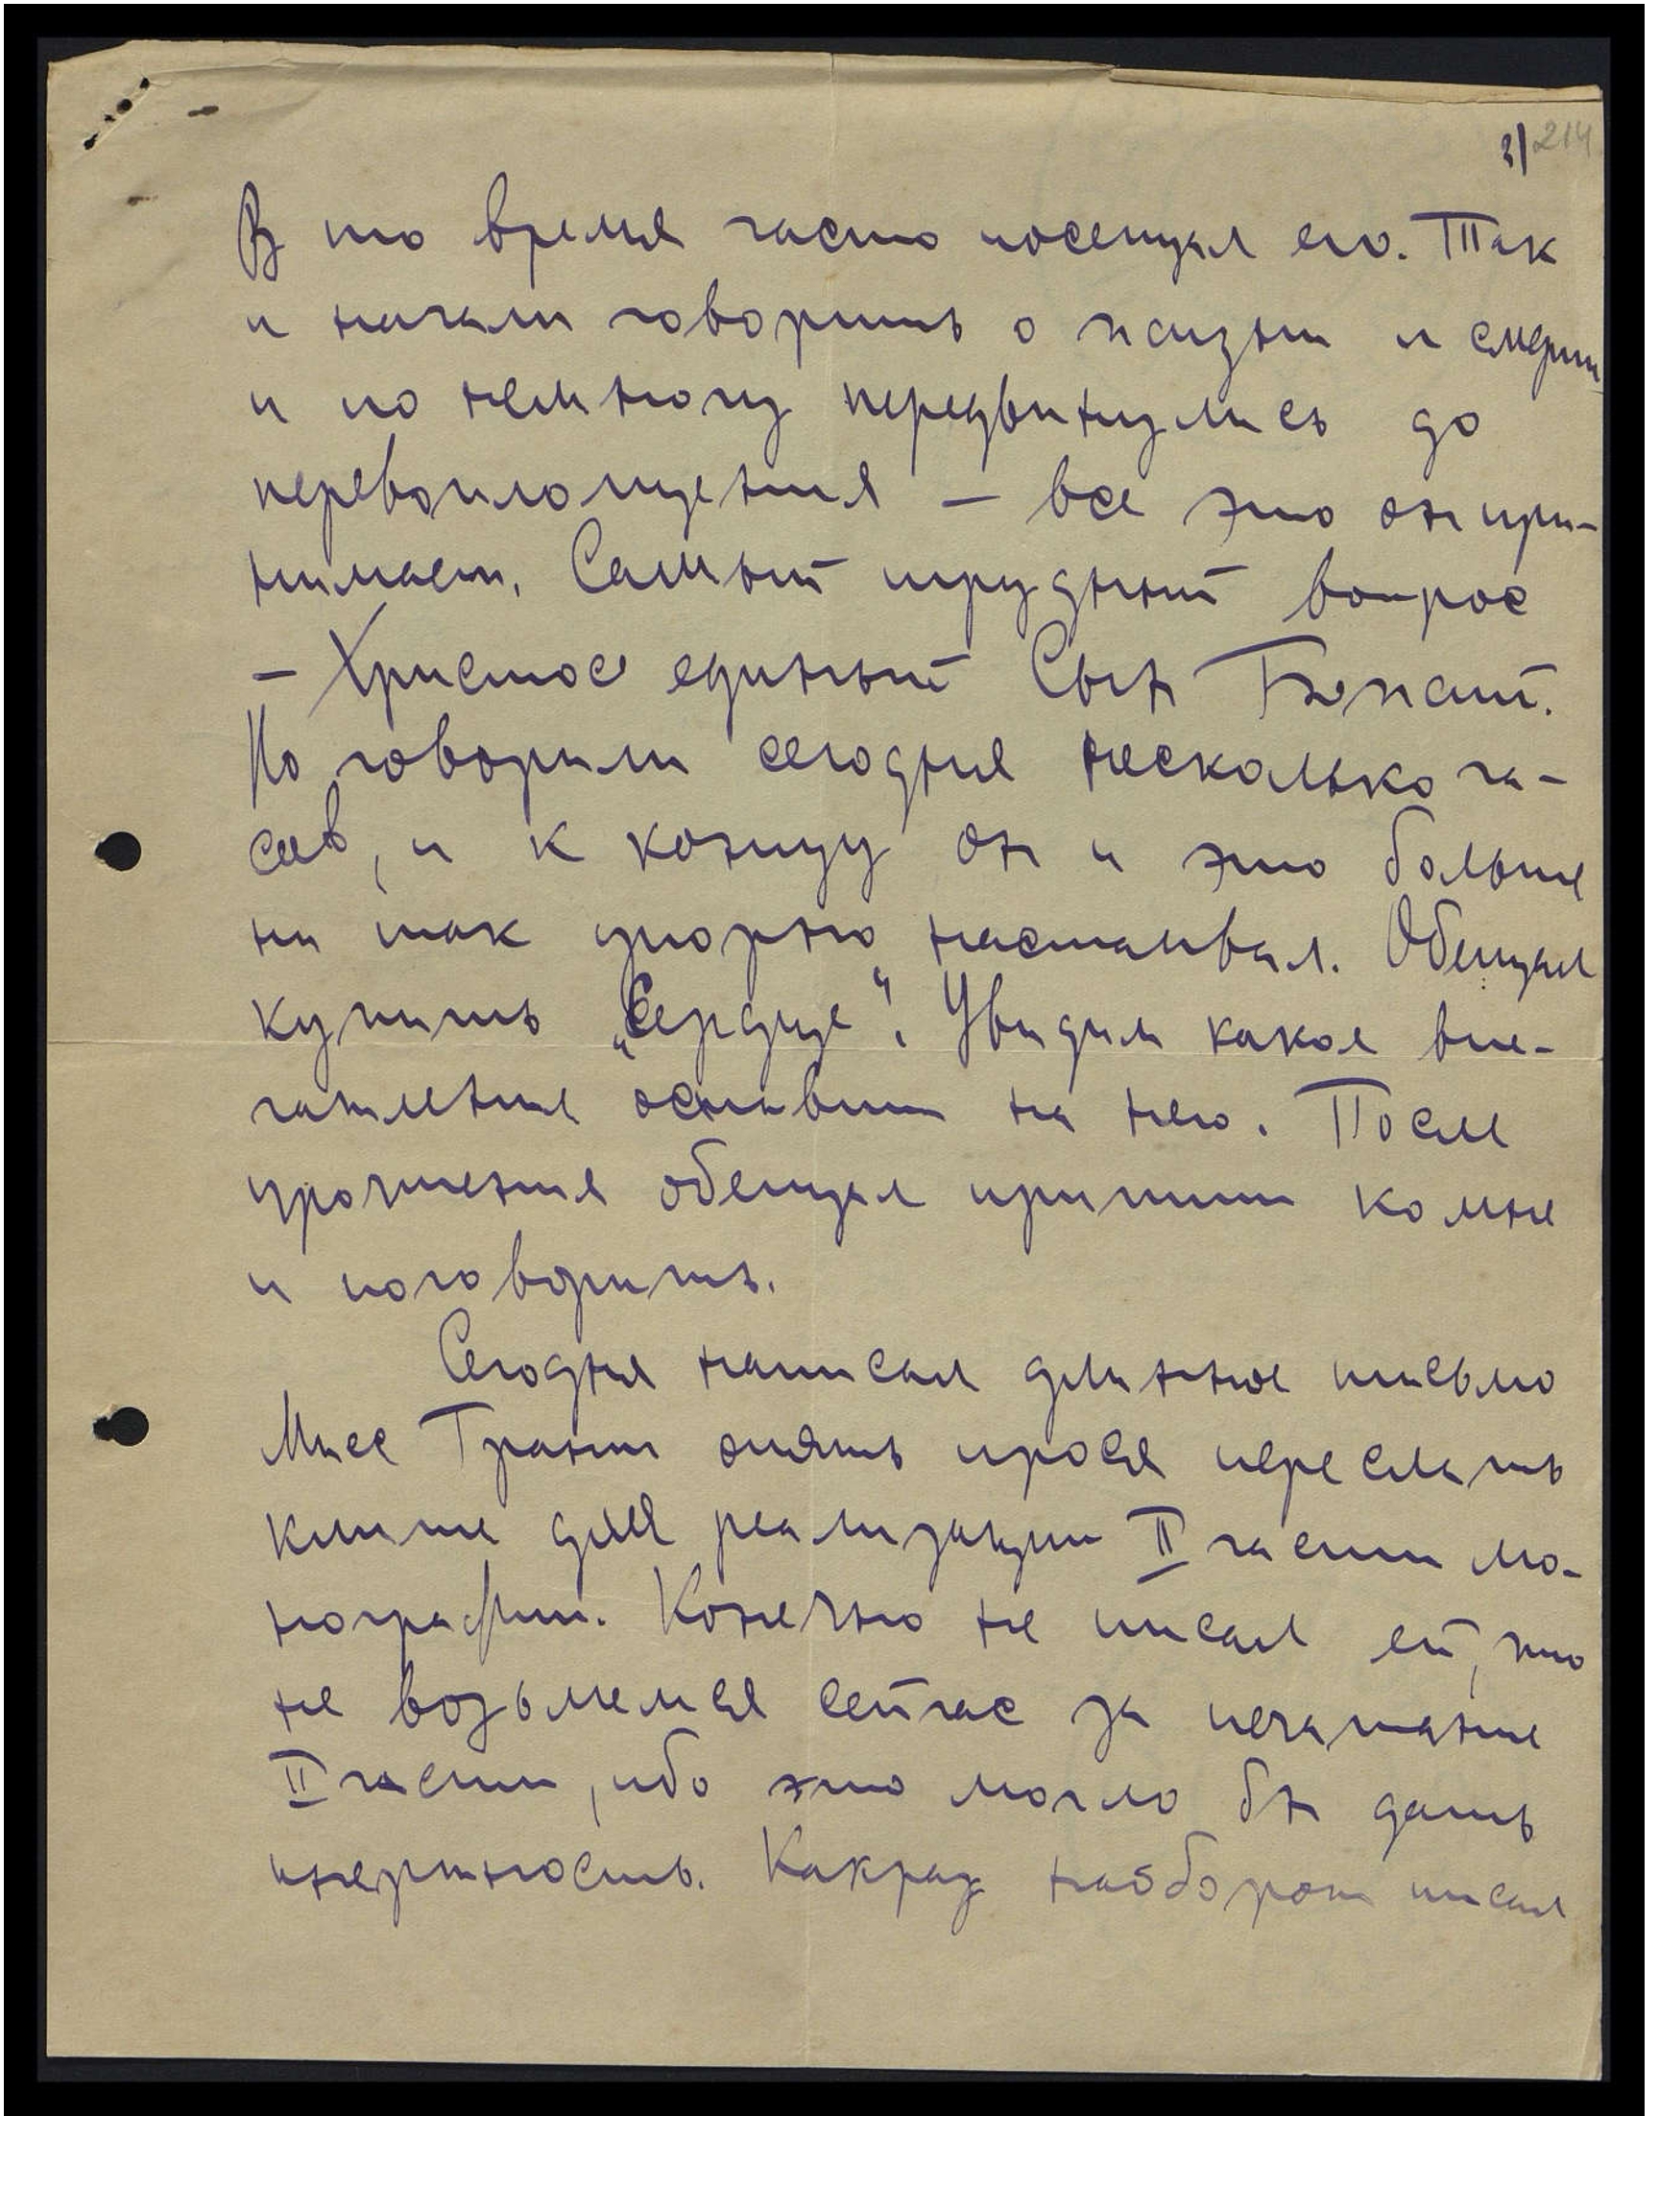 3/ 214
В то время часто посещал его. Так
и начали говорить о жизни и смерти
и по немногу передвинулись до
перевоплощения – все это он при-
нимает. Самый трудный вопрос
– Христос единый Сын Божий.
Но говорили сегодня несколько ча-
сов, и к концу он и это больше
ни так упорно настаивал. Обещал
купить „Сердце“. Увидим какое впе-
чатление оставит на него. После
прочтения обещал притти ко мне
и поговорить.
Сегодня написал длинное письмо
Мисс Грант опять прося переслать
клише для реализации II части мо-
нографии. Конечно не писал ей, что
не возьмемся сейчас за печатание
II части, ибо это могло бы дать
инертность. Какраз наоборот писал